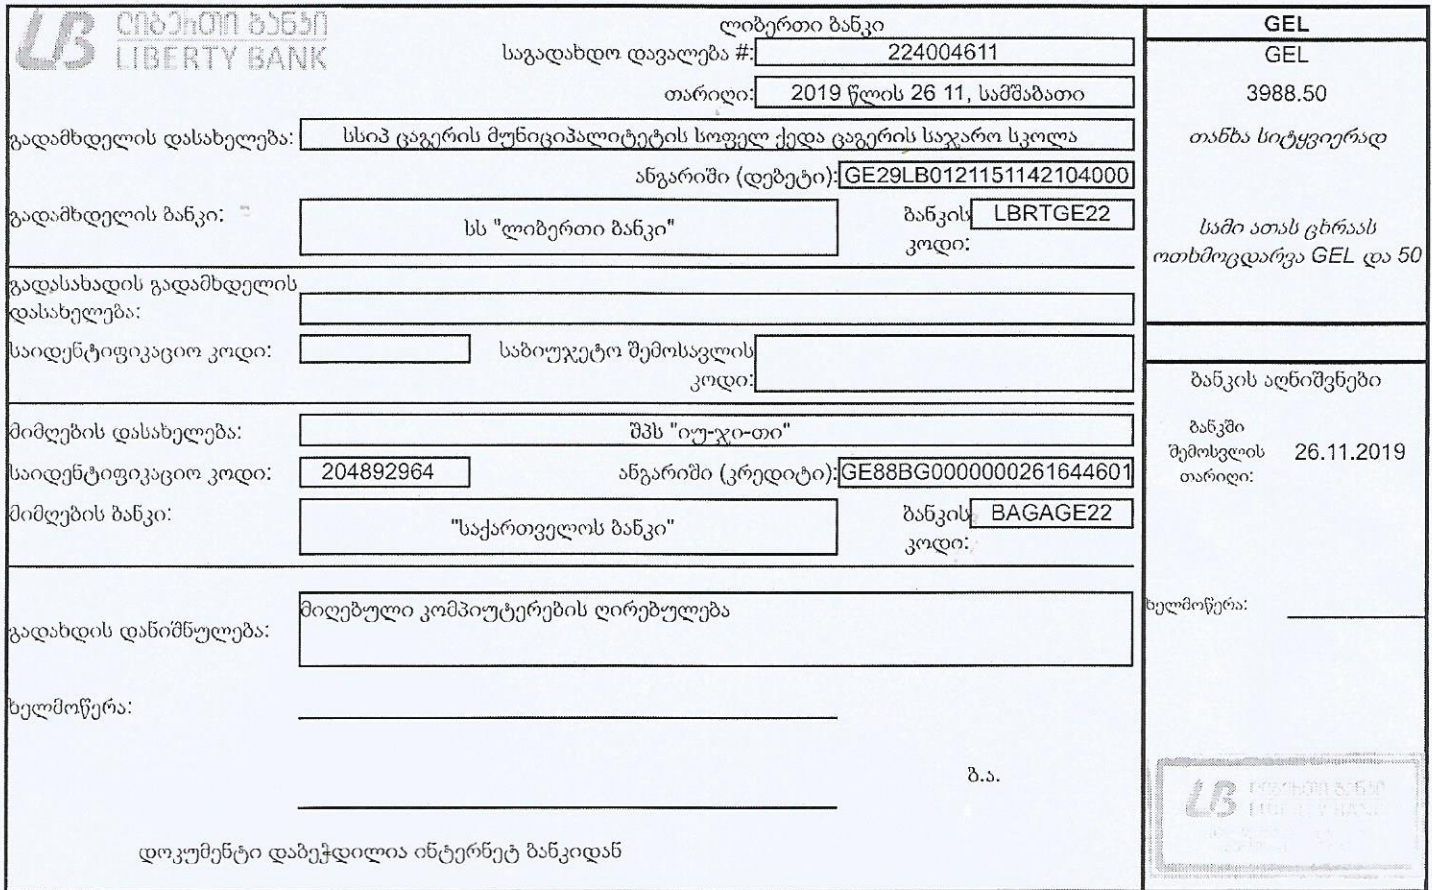 ლიბერთი ბანკი
LIBERTY BANK
ლიბერთი ბანკი
საგადახდო დავალება #: 224004611
თარიღი: 2019 წლის 26 11, სამშაბათი
გადამხდელის დასახელება: სსიპ ცაგერის მუნიციპალიტეტის სოფელ ქედა ცაგერის საჯარო სკოლა
ანგარიში (დებეტი): GE29LB0121151142104000
გადამხდელის ბანკი: სს "ლიბერთი ბანკი" ბანკის კოდი: LBRTGE22
გადასახადის გადამხდელის
დასახელება:
საიდენტიფიკაციო კოდი: საბიუჯეტო შემოსავლის
კოდი:
მიმღების დასახელება: შპს "იუ-ჯი-თი"
საიდენტიფიკაციო კოდი: 204892964 ანგარიში (კრედიტი): GE88BG0000000261644601
მიმღების ბანკი: "საქართველოს ბანკი" ბანკის კოდი: BAGAGE22
გადახდის დანიშნულება: მიღებული კომპიუტერების ღირებულება
ხელმოწერა:
ბ.ა.
დოკუმენტი დაბეჭდილია ინტერნეტ ბანკიდან
GEL
GEL
3988.50
თანხა სიტყვიერად
სამი ათას ცხრაას
ოთხმოცდარვა GEL და 50
ბანკის აღნიშვნები
ბანკში
შემოსვლის 26.11.2019
თარიღი:
ხელმოწერა:
LB ლიბერთი ბანკი
LIBERTY BANK